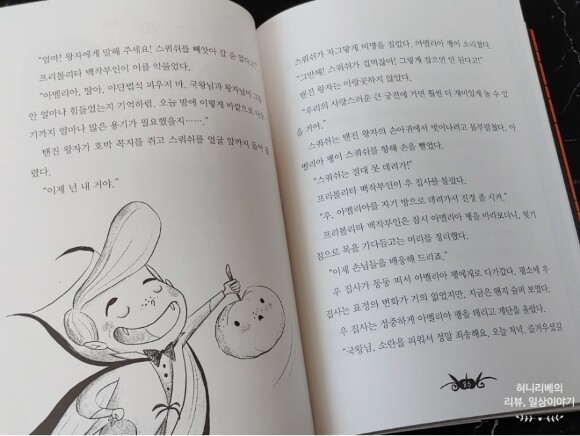 "엄마! 왕자에게 말해 주세요! 스쿼쉬를 빼앗아 갈 순 없다고!"
프리볼리타 백작부인이 이를 악물었다.
"아멜리아, 딸아, 야단법석 피우지 마. 국왕님과 왕자님이 그동
안 얼마나 힘들었는지 기억하렴. 오늘 밤에 이렇게 바깥으로 나오
기까지 얼마나 많은 용기가 필요했을지……."
탠진 왕자가 호박 꼭지를 쥐고 스쿼쉬를 얼굴 앞까지 들어 올
렸다.
"이제 넌 내 거야."
스쿼쉬가 자그맣게 비명을 질렀다. 아멜리아 팽이 소리쳤다.
"그만해! 스쿼쉬가 겁먹잖아! 그렇게 잡으면 안 된다고!"
탠진 왕자는 아랑곳하지 않았다.
"우리의 사랑스러운 큰 궁전에 가면 훨씬 더 재미있게 놀 수 있
을 거야."
스쿼쉬는 탠진 왕자의 손아귀에서 벗어나려고 몸부림쳤다. 아
멜리아 팽이 스쿼쉬를 향해 손을 뻗었다.
"스쿼쉬는 절대 못 데려가!"
프리볼리타 백작부인이 우 집사를 불렀다.
"우, 아멜리아를 자기 방으로 데려가서 진정 좀 시켜."
프리볼리타 백작부인은 잠시 아멜리아 팽을 바라보더니, 헛기
침으로 목을 가다듬고는 머리를 정리했다.
"이제 손님들을 배웅해 드리죠."
우 집사가 둥둥 떠서 아멜리아 팽에게로 다가갔다. 평소에 우
집사는 표정의 변화가 거의 없었지만, 지금은 왠지 슬퍼 보였다.
우 집사는 정중하게 아멜리아 팽을 데리고 계단을 올랐다.
"국왕님, 소란을 피워서 정말 죄송해요. 오늘 저녁, 즐거우셨길
85
허니리베의
리뷰, 일상이야기